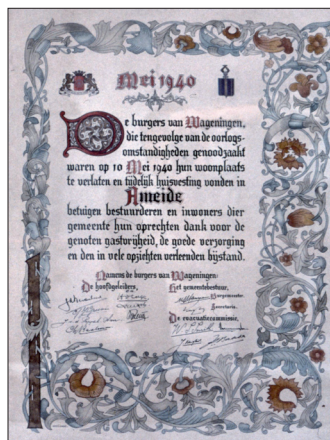 Mei 1940
De burgers van Wageningen,
die tengevolge van de oorlogs-
omstandigheden genoodzaakt
waren op 10 Mei 1940 hun woonplaats
te verlaten en tijdelijk huisvesting vonden in
Ameide
betuigen bestuurderen en inwoners dier
gemeente hun oprechten dank voor de
genoten gastvrijheid, de goede verzorging
en den in vele opzichten verleenden bijstand.
Namens de burgers van Wageningen:
De hoofdgeleiders,
Het gemeentebestuur,
Burgemeester.
Secretaris.
De evacuatiecommissie,